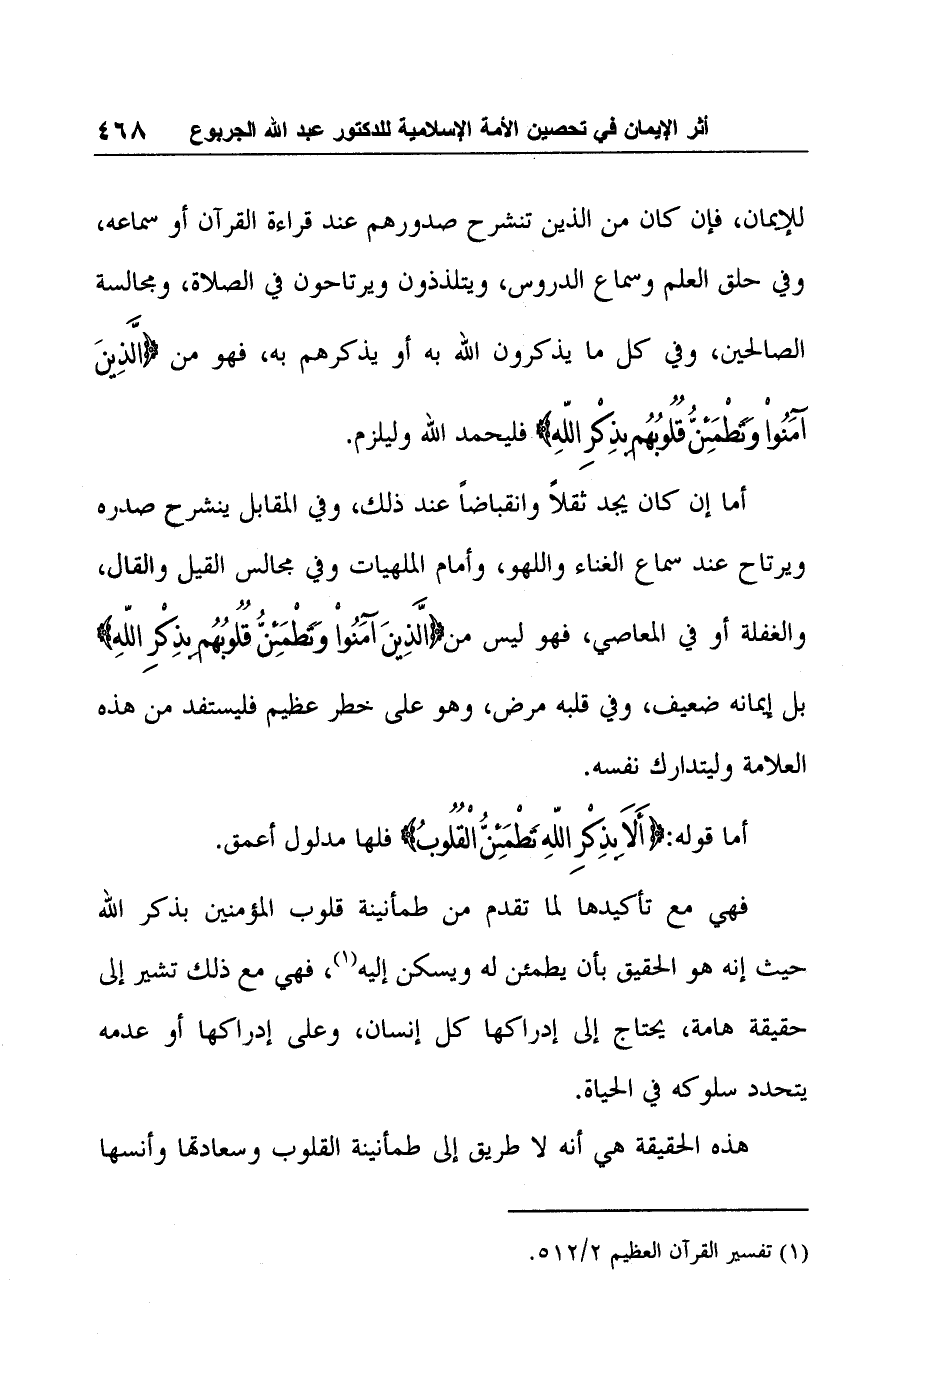 أثر الإيمان في تحصين الأمة الإسلامية للدكتور عبد الله الجربوع ٤٦٨
للإيمان، فإن كان من الذين تنشرح صدورهم عند قراءة القرآن أو سماعه،
وفي حلق العلم وسماع الدروس، ويتلذذون ويرتاحون في الصلاة، ومجالسة
الصالحين، وفي كل ما يذكرون الله به أو يذكرهم به، فهو من ﴿الَّذِينَ
آمَنُواْ وَتَطْمَئِنُّ قُلُوبُهُم بِذِكْرِ اللّهِ﴾ فليحمد الله وليلزم.
أما إن كان يجد ثقلاً وانقباضاً عند ذلك، وفي المقابل ينشرح صدره
ويرتاح عند سماع الغناء واللهو، وأمام الملهيات وفي مجالس القيل والقال،
والغفلة أو في المعاصي، فهو ليس من﴿الَّذِينَ آمَنُواْ وَتَطْمَئِنُّ قُلُوبُهُم بِذِكْرِ اللّهِ﴾
بل إيمانه ضعيف، وفي قلبه مرض، وهو على خطر عظيم فليستفد من هذه
العلامة وليتدارك نفسه.
أما قوله:﴿أَلاَ بِذِكْرِ اللّهِ تَطْمَئِنُّ الْقُلُوبُ﴾ فلها مدلول أعمق.
فهي مع تأكيدها لما تقدم من طمأنينة قلوب المؤمنين بذكر الله
حيث إنه هو الحقيق بأن يطمئن له ويسكن إليه(١)، فهي مع ذلك تشير إلى
حقيقة هامة، يحتاج إلى إدراكها كل إنسان، وعلى إدراكها أو عدمه
يتحدد سلوكه في الحياة.
هذه الحقيقة هي أنه لا طريق إلى طمأنينة القلوب وسعادتها وأنسها
(١) تفسير القرآن العظيم ٥١٢/٢.